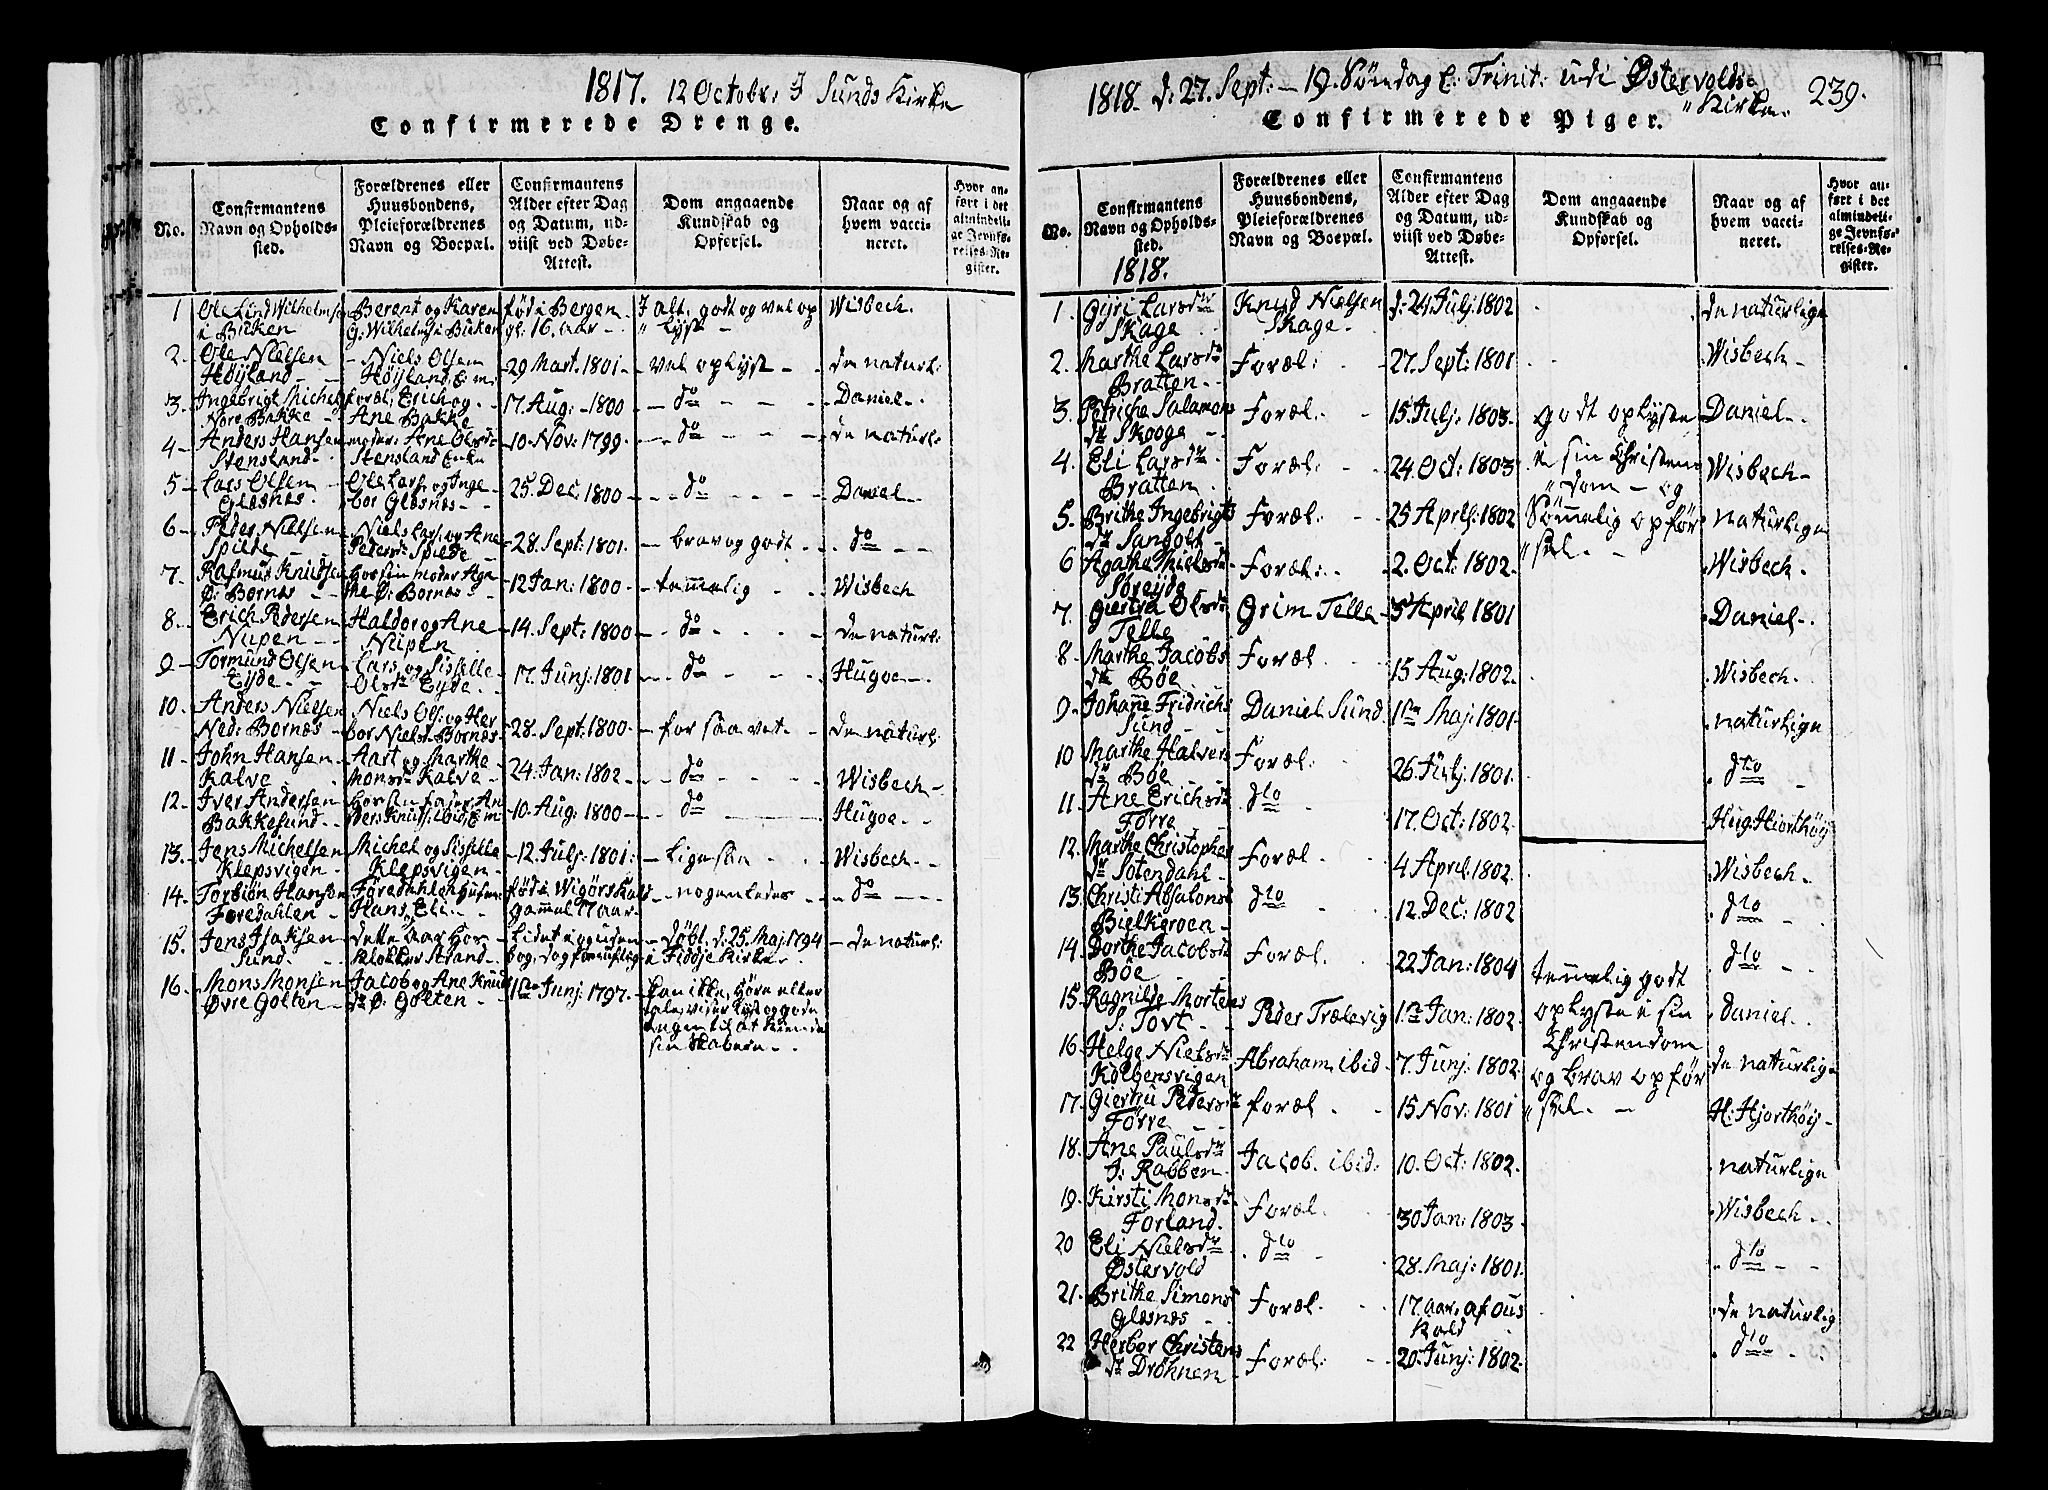 1817. 12 Octobr: I Sunds Kirke
Confirmerede Drenge.
No.
Confirmantens Navn og Opholdssted.
Forældrenes eller Huusbondens, Pleieforældrenes Navn og Boepæl.
Confirmantens Alder efter Dag og Datum, udviist ved Døbe-Attest.
Dom angaaende Kundskab og Opførsel.
Naar og af hvem vaccineret.
Hvor anført i det almindelige Jevnførelses-Register.
1 Ole Lind Wilhelmsen i Birken Berent og Karen G. Wilhelms: Birken fød i Bergen gl: 16 aar I alt, godt og vel op „lyst Wisbech.
2. Ole Nielsen Höyland Niels Olsen Höyland, E m: 29 Mart. 1801 vel oplyst de naturl:
3. Ingebrigt Michels: Nore Bakke foræl: Erich og Ane Bakke 17 Aug: 1800 do Daniel
4 Anders Hansen Stensland moder: Ane Olsdr Stensland Enke 10 Nov: 1799 do de naturl:
5 Lars Olsen Glesnes Ole Lars: og Ingebor Glesnes 25 Dec: 1800 do Daniel
6 Peder Nielsen Spilde Niels Lars: og Ane Pedersd: Spilde 28. Sept: 1801. brav og godt do
7. Rasmus Knudsen Ø: Bornæs hos sin moder Agathe Ø: Bornæs 12 Jan: 1800 temmelig Wisbech
8. Erich Pedersen Nipen Haldor og Ane Nipen 14. Sept: 1800 do de naturl:
9 Tormund Olsen Eyde Lars, og Sisselle Olsdr Eyde 17 Junj: 1801 do Hugoe
10. Anders Nielsen Ned: Bornæs Niels Ols: og Herbor Nielsd: Bornæs 28. Sept: 1800 forsaavet de naturl:
11 John Hansen Kalve Aart og Marthe Monsdr Kalve 24. Jan: 1802 do Wisbech
12. Iver Andersen Bakkesund hos sin fader Anders Knuds: ibid: E m 10 Aug: 1800 do Hugoe
13. Jens Michelsen Klepsvigen Michel og Sisselle Klepsvigen 12 Julj: 1801: ligesaa Wisbech
14 Torbiön Hansen Foredahlen Föredahlen Huusm: Hans, Eli fød i Wigörs Kald gammel 17 aar nogenledes do
15. Jens Isaksen Sund dette aar hos klokker Strand lidet i guds bog, dog fornuftig døbt d: 25 Maj 1794 i Fiddje Kirke de naturl:
16. Mons Monsen Øvre Golten Jacob og Ane Knudsdr Ø: Golten 1ste Junj: 1797. kan ikke, høre eller tale, viser lyst og gode tegn til at kiende sin Skabere
1818. d: 27. Sept: 19. Söndag E: Trinit: udi Østervolds „Kirke. 239.
Confirmerede Piger.
No.
Confirmantens Navn og Opholdssted.
1818.
Forældrenes eller Huusbondens, Pleieforældrenes Navn og Boepæl.
Confirmantens Alder efter Dag og Datum, udviist ved Døbe-Attest.
Dom angaaende Kundskab og Opførsel.
Naar og af hvem vaccineret.
Hvor anført i det almindelige Jevnførelses-Register.
1. Gyri Larsdr Skage Knud Nielsen Skage d: 24 Julj: 1802 de naturlige
2. Marthe Larsdr Bratten Foræl: 27. Sept: 1801 Wisbech
3. Petriche Salamons dr Skooge Foræl: 15 Julj: 1803 godt oplyste Daniel
4. Eli Larsdr Bratten Foræl: 24 Oct: 1803 i sin Christen „dom og Wisbech
5. Brithe Ingebrigts dr Sangolt Foræl: 25 April: 1802 Sömmelig opför naturlige
6 Agathe Nielsdr Söreyde Foræl: 2. Oct: 1802 „sel. Wisbech
7. Giertru Olsdr Telle Grim Telle 5 April 1801 Daniel
8. Marthe Jacobs dr Böe Foræl 15 Aug: 1802 Wisbech
9 Johanne Fridrichs Sund Daniel Sund 1ste Maj: 1801 naturlige
10 Marthe Halvers dr Böe Foræl: 26 Julj: 1801 do
11. Ane Erichsdr Förre do 17 Oct: 1802 Hug: Hiorthöy
12. Marthe Christophers dr Sotendahl Foræl 4 April 1802 Wisbech
13. Christi Absalonsd Bielkeroen do 12 Dec: 1802 do
14. Dorthe Jacobsdr Böe Foræl. 22 Jan: 1804 temmelig godt do
15. Ragnilde Mortens S: Tovt Peder Trælevig 1ste Jan: 1802 oplyste i sin Daniel
16. Helge Nielsdr Kolbensvigen Abraham ibid 7 Junj: 1802 Christendom de naturlige
17. Giertru Pedersdr Förre foræl. 15 Nov: 1801 og brav opför „sel. H: Hjorthöy
18. Ane Paulsdr I: Rabben Jacob. ibid: 10. Oct: 1802. naturlige
19. Kirsti Monsdr Forland Foræl 30 Jan: 1803 Wisbech
20 Eli Nielsdr Østervold do 28. Maj: 1801 do
21. Brithe Simonsd Glesnæs Foræl. 17 aar. af Ous Kald de naturlig
22 Herbor Christens dr Dröhnen Foræl: 20 Junj: 1802. do